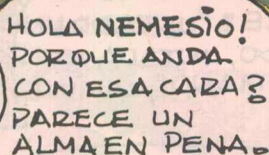 HOLA NEMESIO!
PORQUE ANDA
CON ESA CARA?
PARECE UN
ALMA EN PENA.